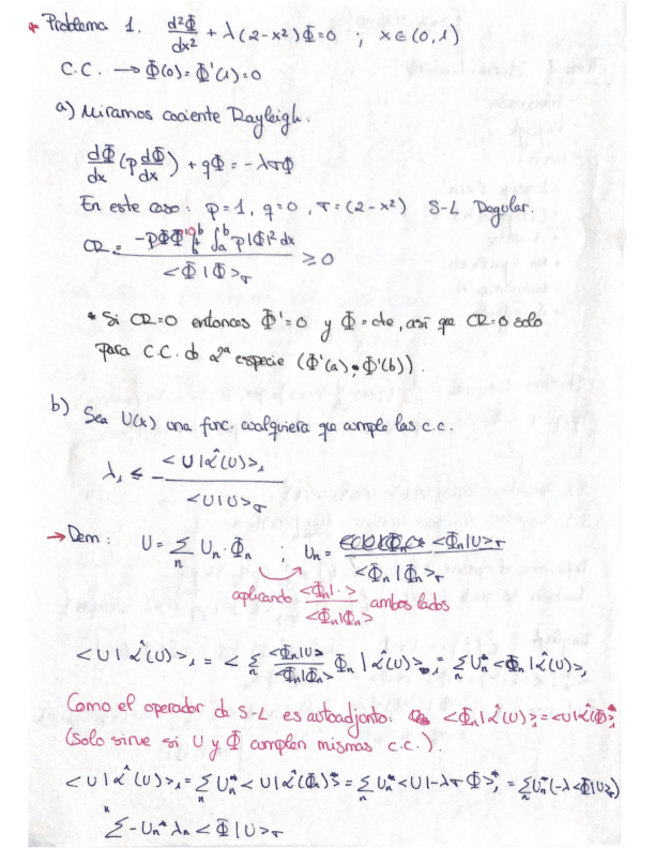 * Problema 1. d²Φ/dx² + λ(2-x²)Φ=0 ; x∈(0,1)
C.C. → Φ(0)=Φ'(1)=0
a) Miramos cociente Rayleigh.
dΦ/dx (p dΦ/dx) + qΦ = -λσΦ
En este caso: p=1, q=0, σ=(2-x²) S-L Regular.
CR = (-pΦΦ'|ₐᵇ ∫ₐᵇ p|Φ|² dx) / <Φ|Φ>σ ≥ 0
* Si CR=0 entonces Φ'=0 y Φ=cte, así qe CR=0 solo
para C.C. de 2ª especie (Φ'(a) = Φ'(b)).
b) Sea U(x) una func. cualquiera qe cumple las c.c.
λ₁ ≤ - <U|L̂(U)>₁ / <U|U>σ
→ Dem: U = Σₙ Uₙ·Φₙ ; Uₙ = <Φₙ|U>σ / <Φₙ|Φₙ>σ
aplicando <Φₙ|·> / <Φₙ|Φₙ> ambos lados
<U|L̂(U)>₁ = < Σₙ <Φₙ|U>/<Φₙ|Φₙ> Φₙ | L̂(U)>₁ = Σₙ Uₙ* <Φₙ|L̂(U)>₁
Como el operador de S-L es autoadjunto. <Φₙ|L̂(U)>₁ = <U|L̂(Φ)>₁*
(solo sirve si U y Φ cumplen mismas c.c.).
<U|L̂(U)>₁ = Σₙ Uₙ* <U|L̂(Φₙ)>* = Σₙ Uₙ* <U|-λσΦ>₁* = ΣUₙ*(-λ<Φ|U>σ)
Σₙ -Uₙ* λₙ <Φ|U>σ